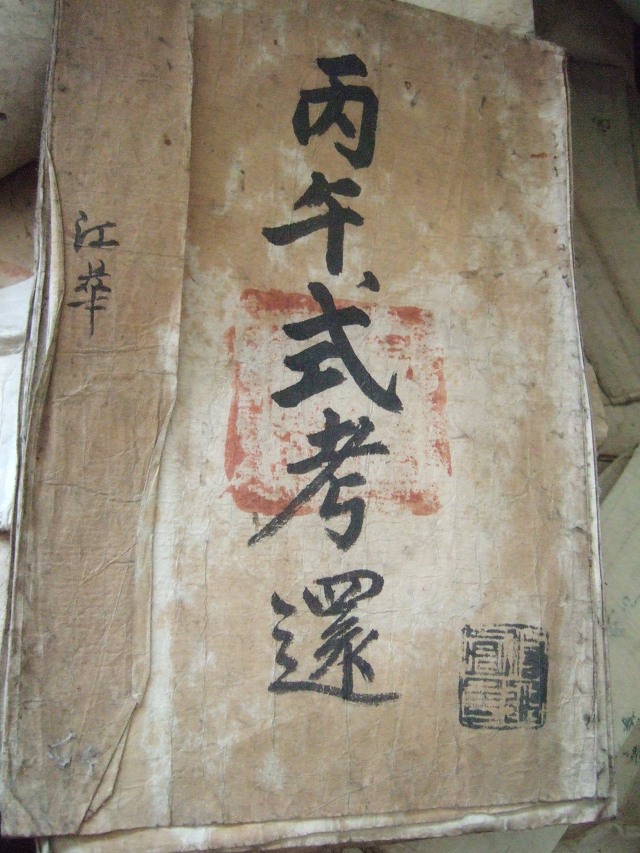 丙午式考還
江華